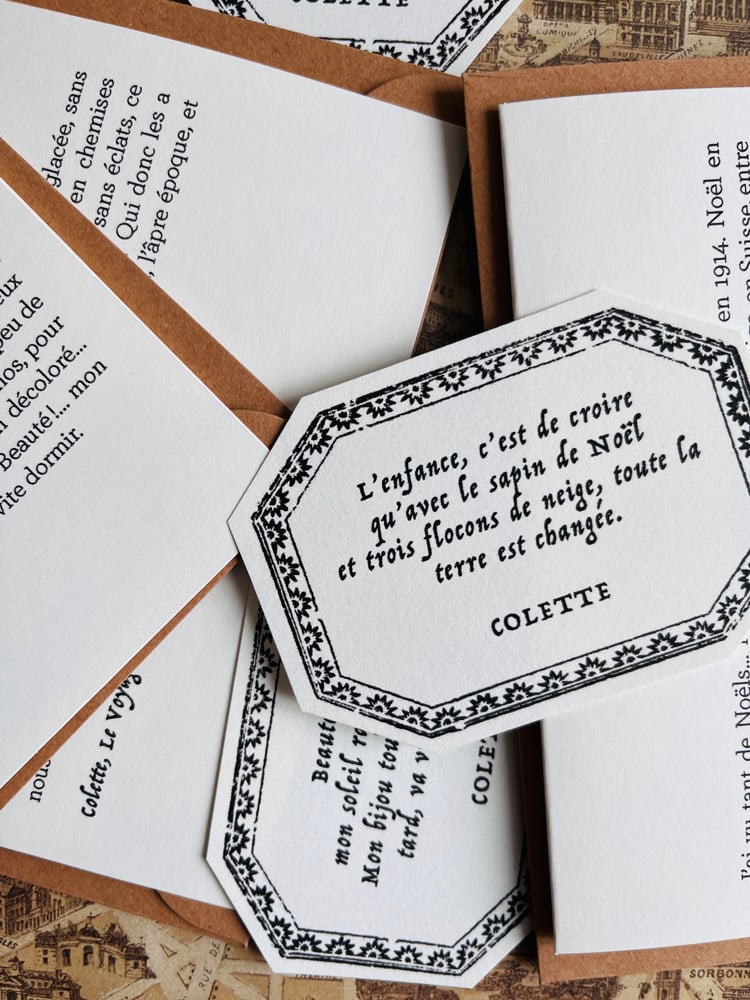 COLETTE
OPÉRA
COMIQUE
glacée, sans
en chemises
sans éclats, ce
Qui donc les a
l'âpre époque, et
en 1914. Noël en
en Suisse entre
peu de
pour
décoloré...
Beauté !... mon
vite dormir.
L'enfance, c'est de croire
qu'avec le sapin de Noël
et trois flocons de neige, toute la
terre est changée.
COLETTE
nous
Colette, Le
mon soleil
Mon bijou
tard, va
J'ai vu tant de Noëls...
RUE DE
SORBONN